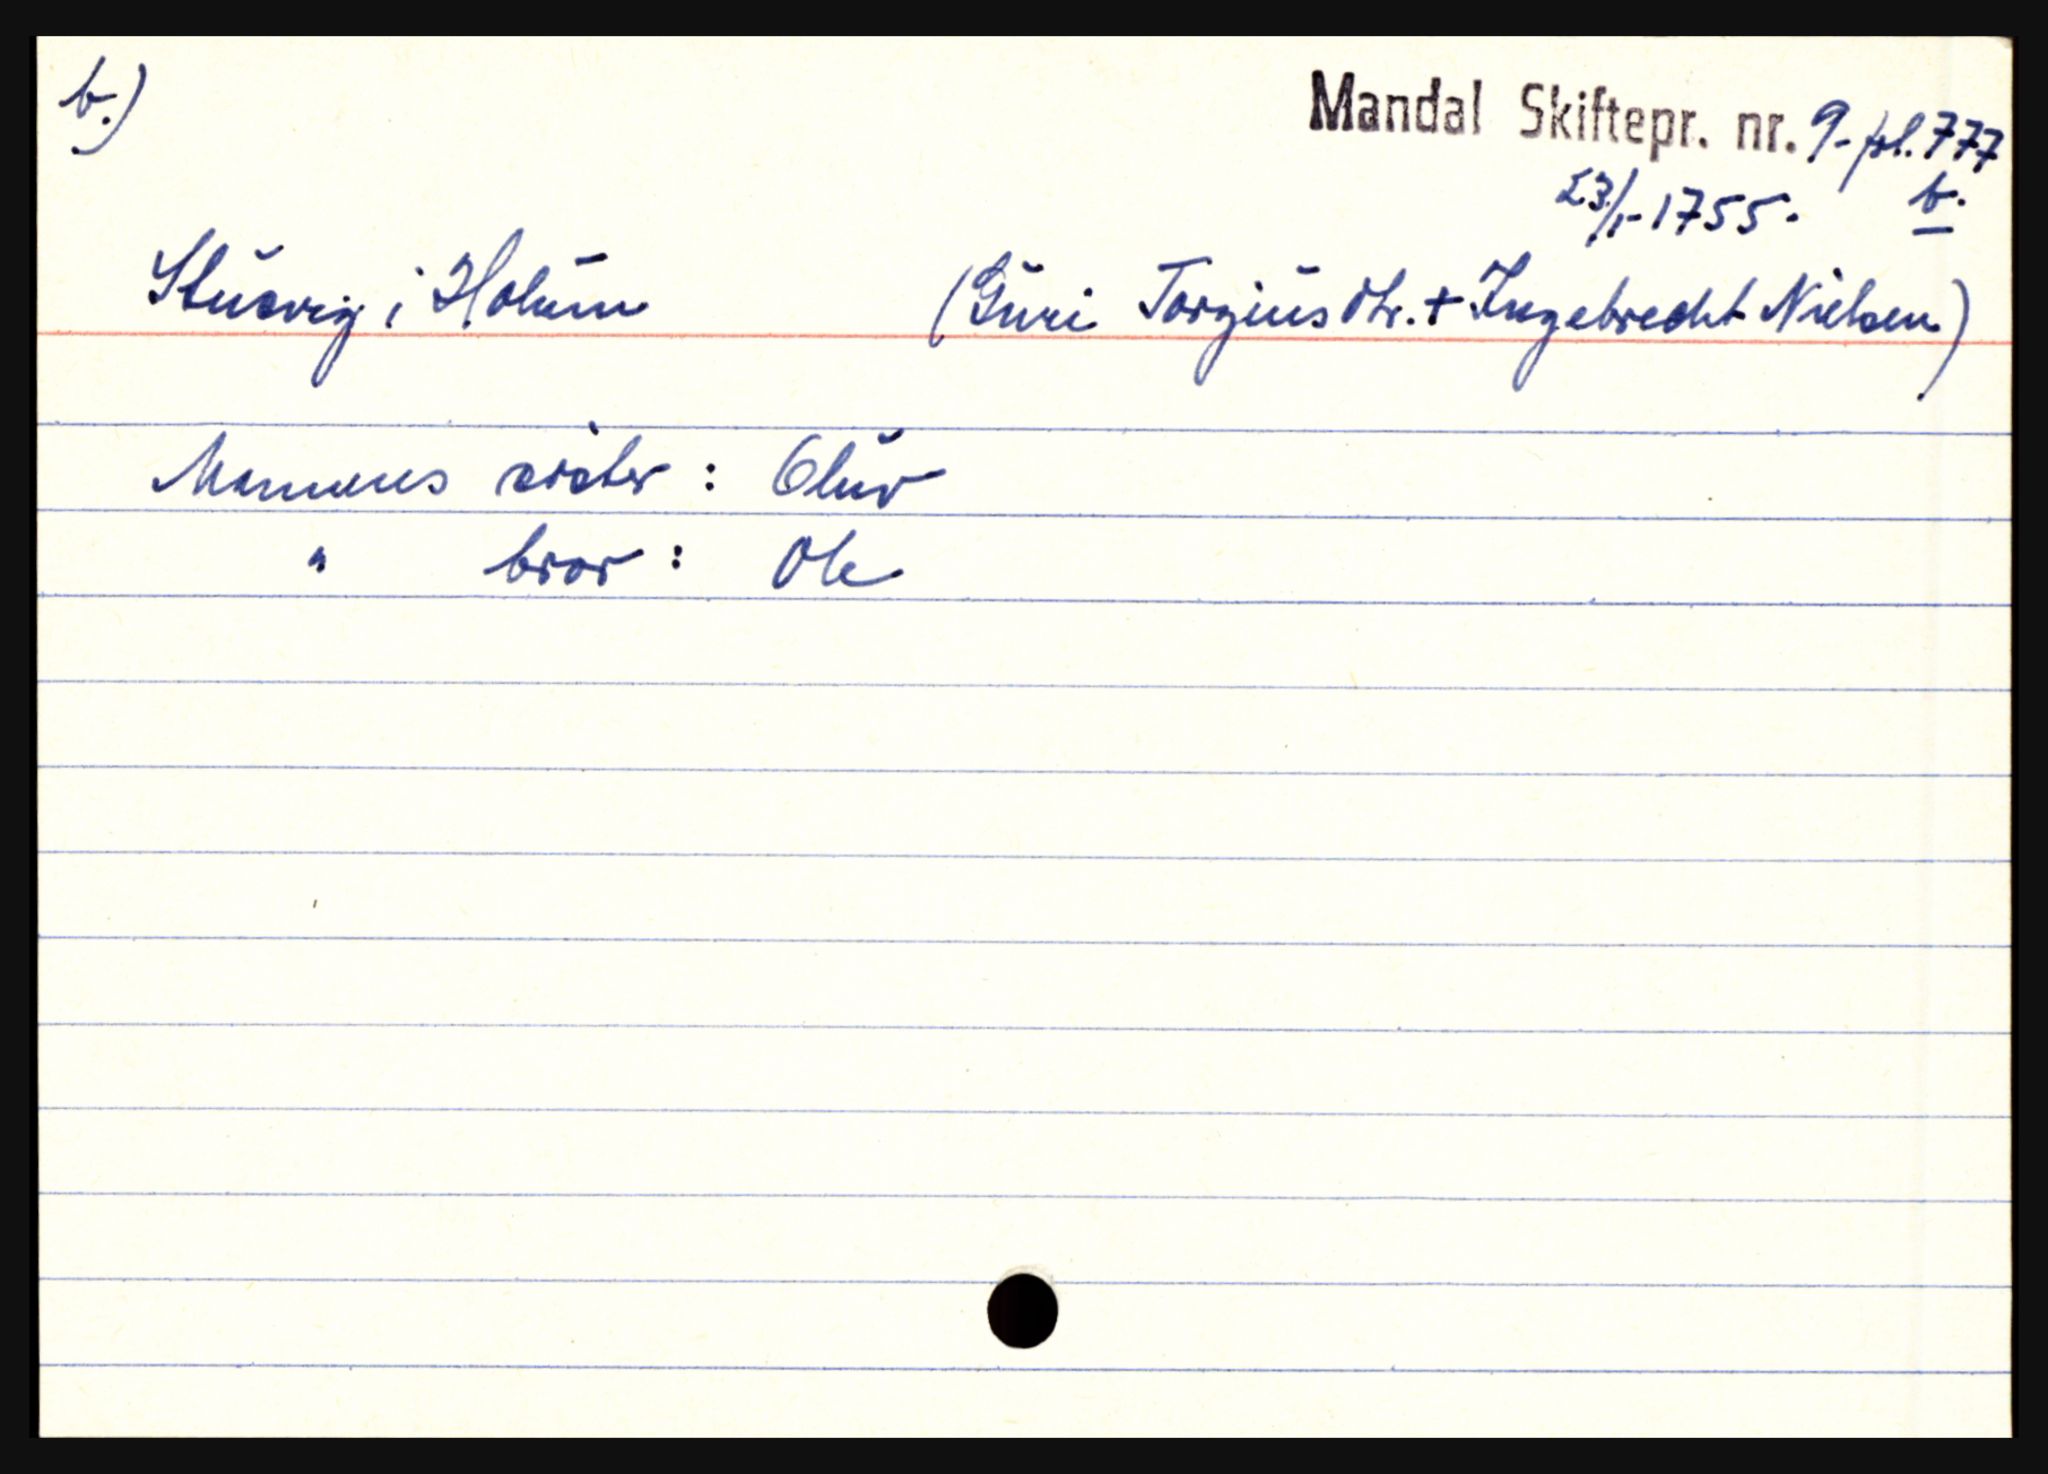 b.)
Mandal Skiftepr. nr. 9 - fol. 777
23/1 - 1755. b.
Stusvig i Holum (Guri Torgiusdtr. + Ingebrecht Nielsen)
Mannens søster : Oluv
" bror : Ole